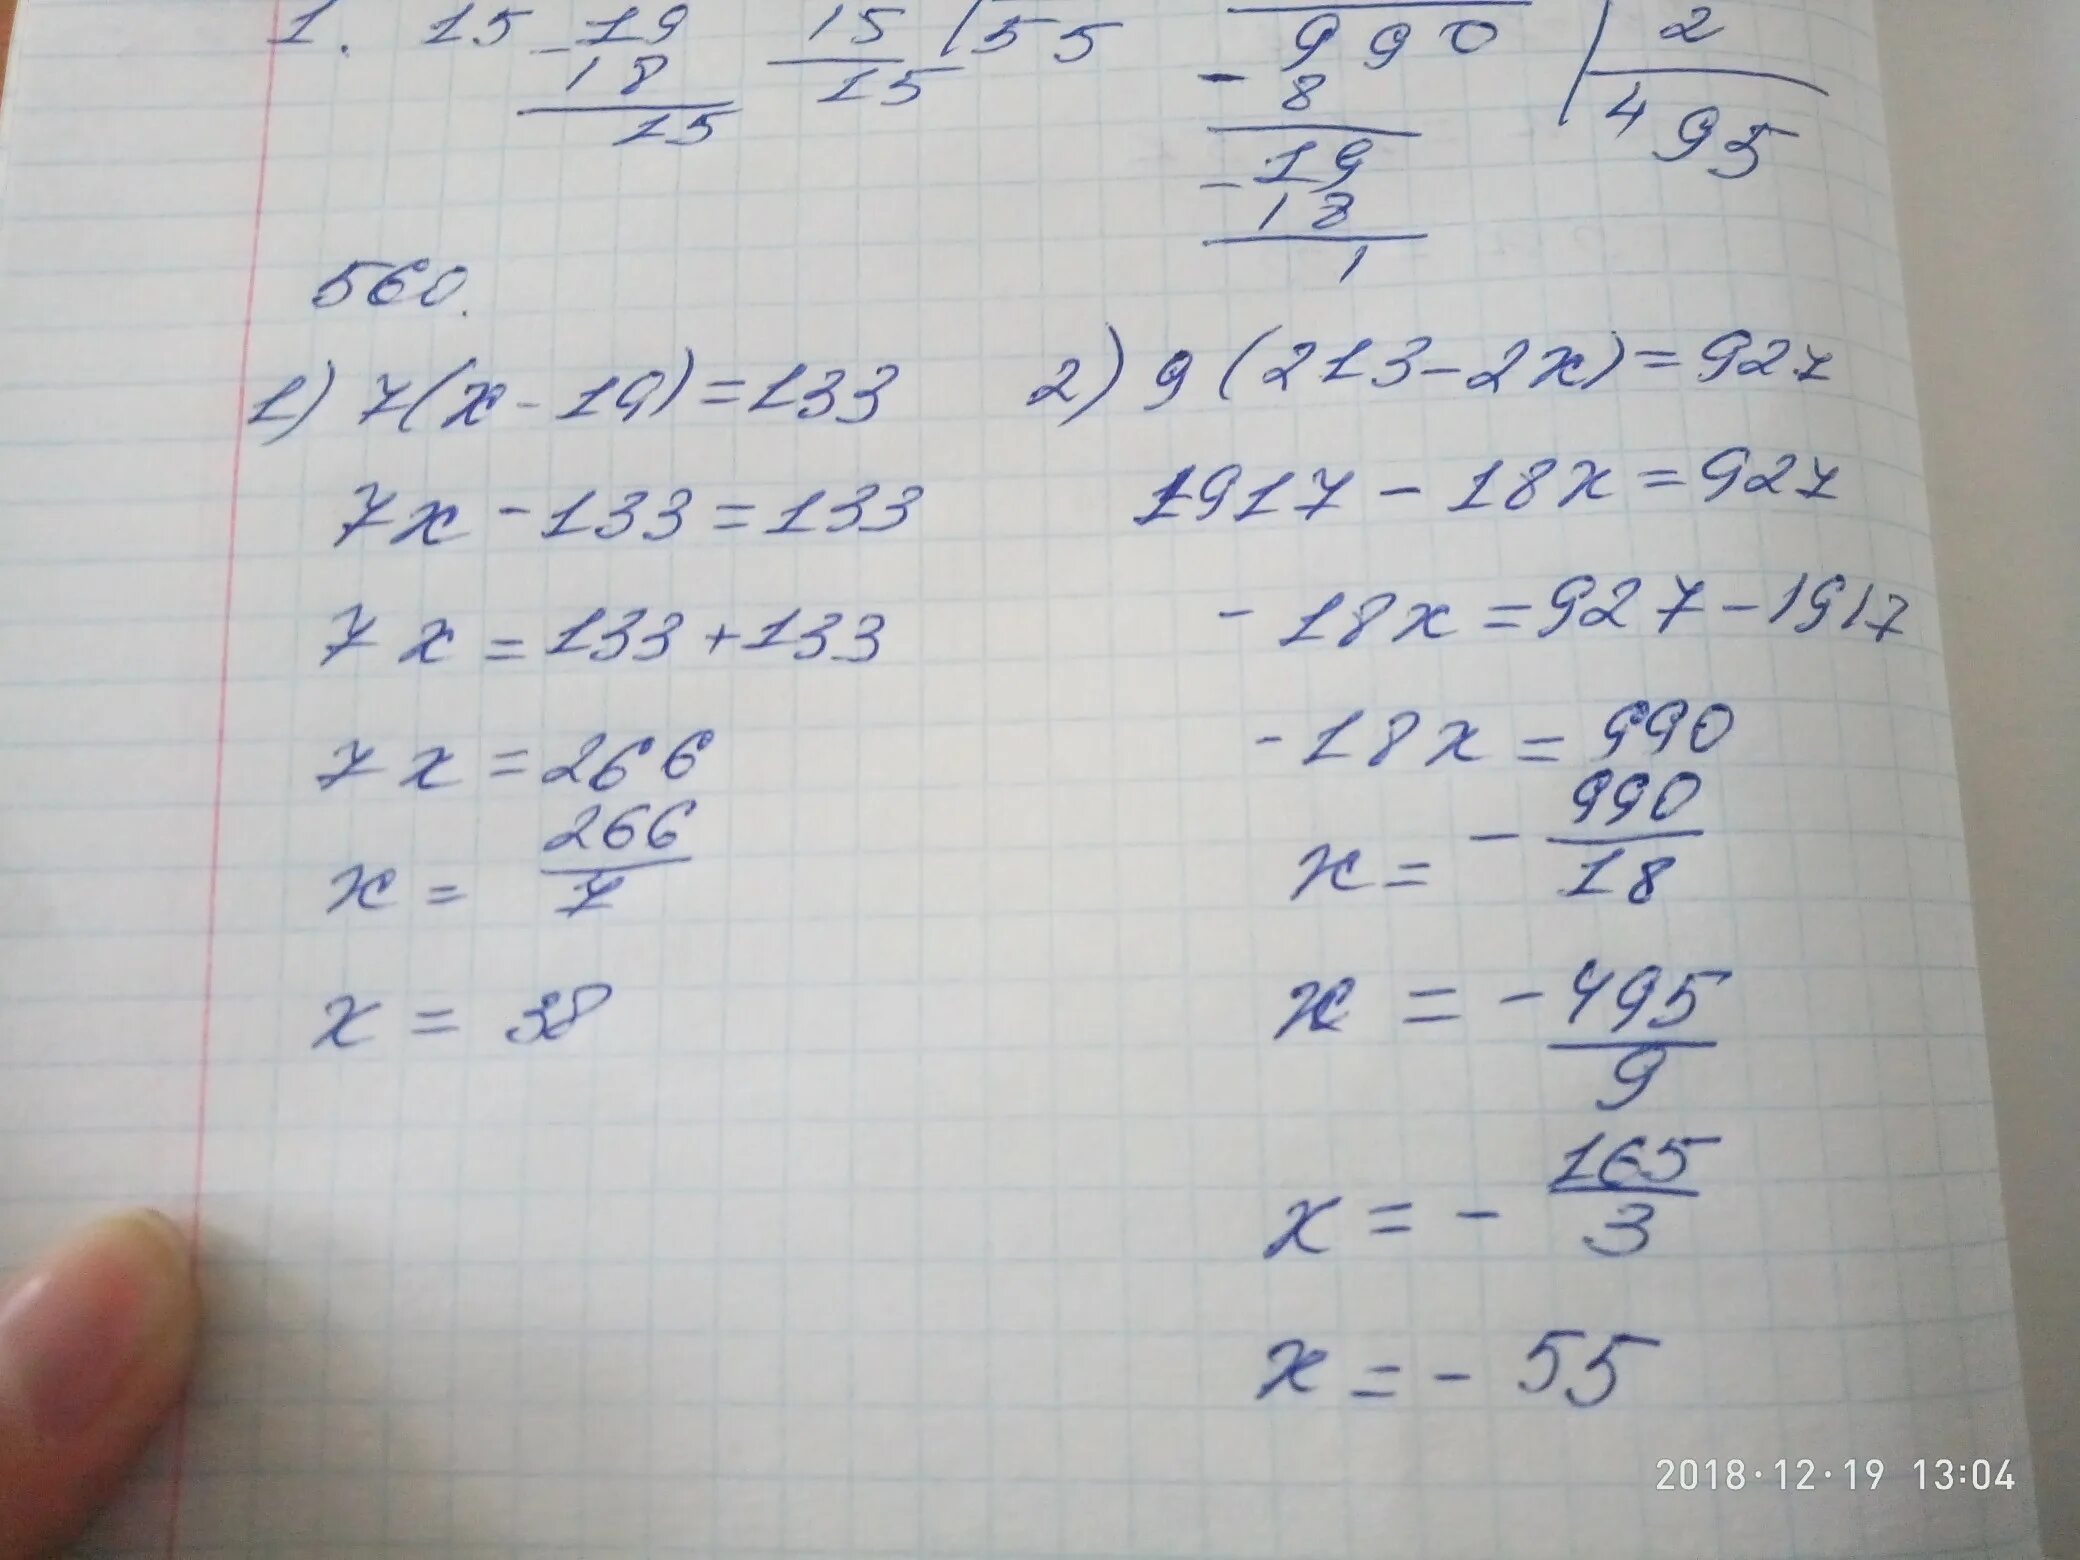 1. 15 - 19 15 55 990 2
18 15 - 8 495
15 - 19
18
1
560.
1) 7(x - 19) = 133
7x - 133 = 133
7x = 133 + 133
7x = 266
x = 266/7
x = 38
2) 9(213 - 2x) = 927
1917 - 18x = 927
- 18x = 927 - 1917
- 18x = 990
x = - 990/18
x = - 495/9
x = - 165/3
x = - 55
2018·12·19 13:04